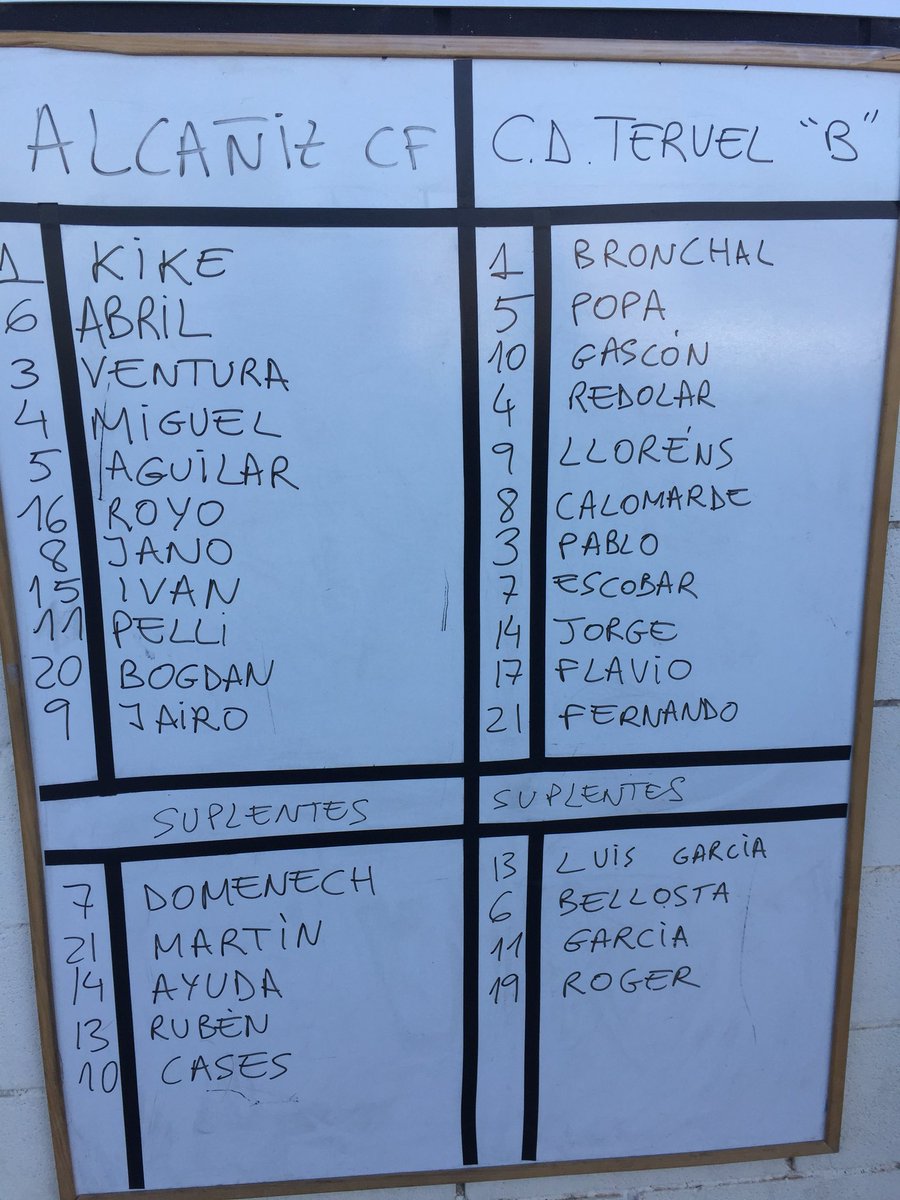 ALCAÑIZ CF
1 KIKE
6 ABRIL
3 VENTURA
4 MIGUEL
5 AGUILAR
16 ROYO
8 JANO
15 IVAN
11 PELLI
20 BOGDAN
9 JAIRO
SUPLENTES
7 DOMENECH
21 MARTÍN
14 AYUDA
13 RUBÈN
10 CASES
C.D. TERUEL "B"
1 BRONCHAL
5 POPA
10 GASCÓN
4 REDOLAR
9 LLORÉNS
8 CALOMARDE
3 PABLO
7 ESCOBAR
14 JORGE
17 FLAVIO
21 FERNANDO
SUPLENTES
13 LUIS GARCÍA
6 BELLOSTA
11 GARCÍA
19 ROGER